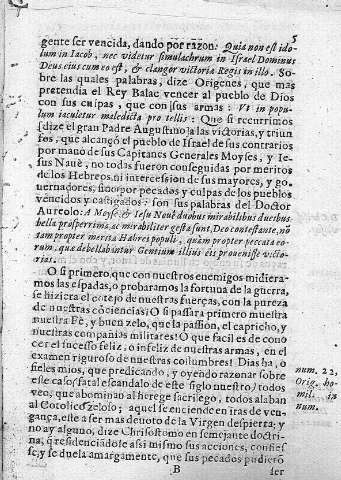 5
gente ser vencida, dando por razon: Quia non est ido-
lum in Iacob, nec videtur simulachrum in Israel Dominus
Deus eius cum eo est, & clangor victoriæ Regis in illo. So-
bre las quales palabras, dize Origenes, que mas
pretendia el Rey Balac vencer al pueblo de Dios
con sus culpas, que con sus armas: Vt in populum
iaculetur maledicta pro tellis: Que si recurrimos
(dize el gran Padre Augustino) a las victorias, y triun
fos, que alcançò el pueblo de Israel de sus contrarios
por mano de sus Capitanes Generales Moyses, y Ie-
sus Nauè, no todas fueron conseguidas por meritos
de los Hebreos, ni intercession de sus mayores, y go-
uernadores, sino por pecados y culpas de los pueblos
vencidos y castigados: son sus palabras del Doctor
Aureolo: A Moyse & Iesu Nauè duobus mirabilibus ducibus
bella prosperrima ac mirabiliter gesta sunt, Deo contestante, nõ
tam propter merita Habrei populi, quàm propter peccata eo-
rum, quæ debellabintur Gentium illius eis prouenisse victo-
rias.
O si primero que con nuestros enemigos midiera-
mos las espadas, o probaramos la fortuna de la guerra,
se hiziera el cotejo de nuestras fuerças, con la pureza
de nuestras cõciencias! O si passara primero muestra
nuestra Fè, y buen zelo, que la passion, el capricho, y
nuestras compañias militares! O que facil es de cono-
cer el sucesso feliz, o infeliz de nuestras armas, en el
examen riguroso de nuestras costumbres! Dias ha, o
fieles mios, que predicando, y oyendo razonar sobre
este caso fatal escandalo de este siglo nuestro, todos
ven, que abominan al herege sacrilego, todos alaban
al Cotolico zeloso; aquel se enciende en iras de ven-
gança, este a ser mas deuoto de la Virgen despierta; y
no ay alguno, dize Chrisostomo en semejante doctri-
na, q residenciãdole assi mismo sus acciones, confies-
se, y se duela amargamente, que sus pecados pudierõ
B
ser
num. 22,
Orig. ho-
mil. in
num.